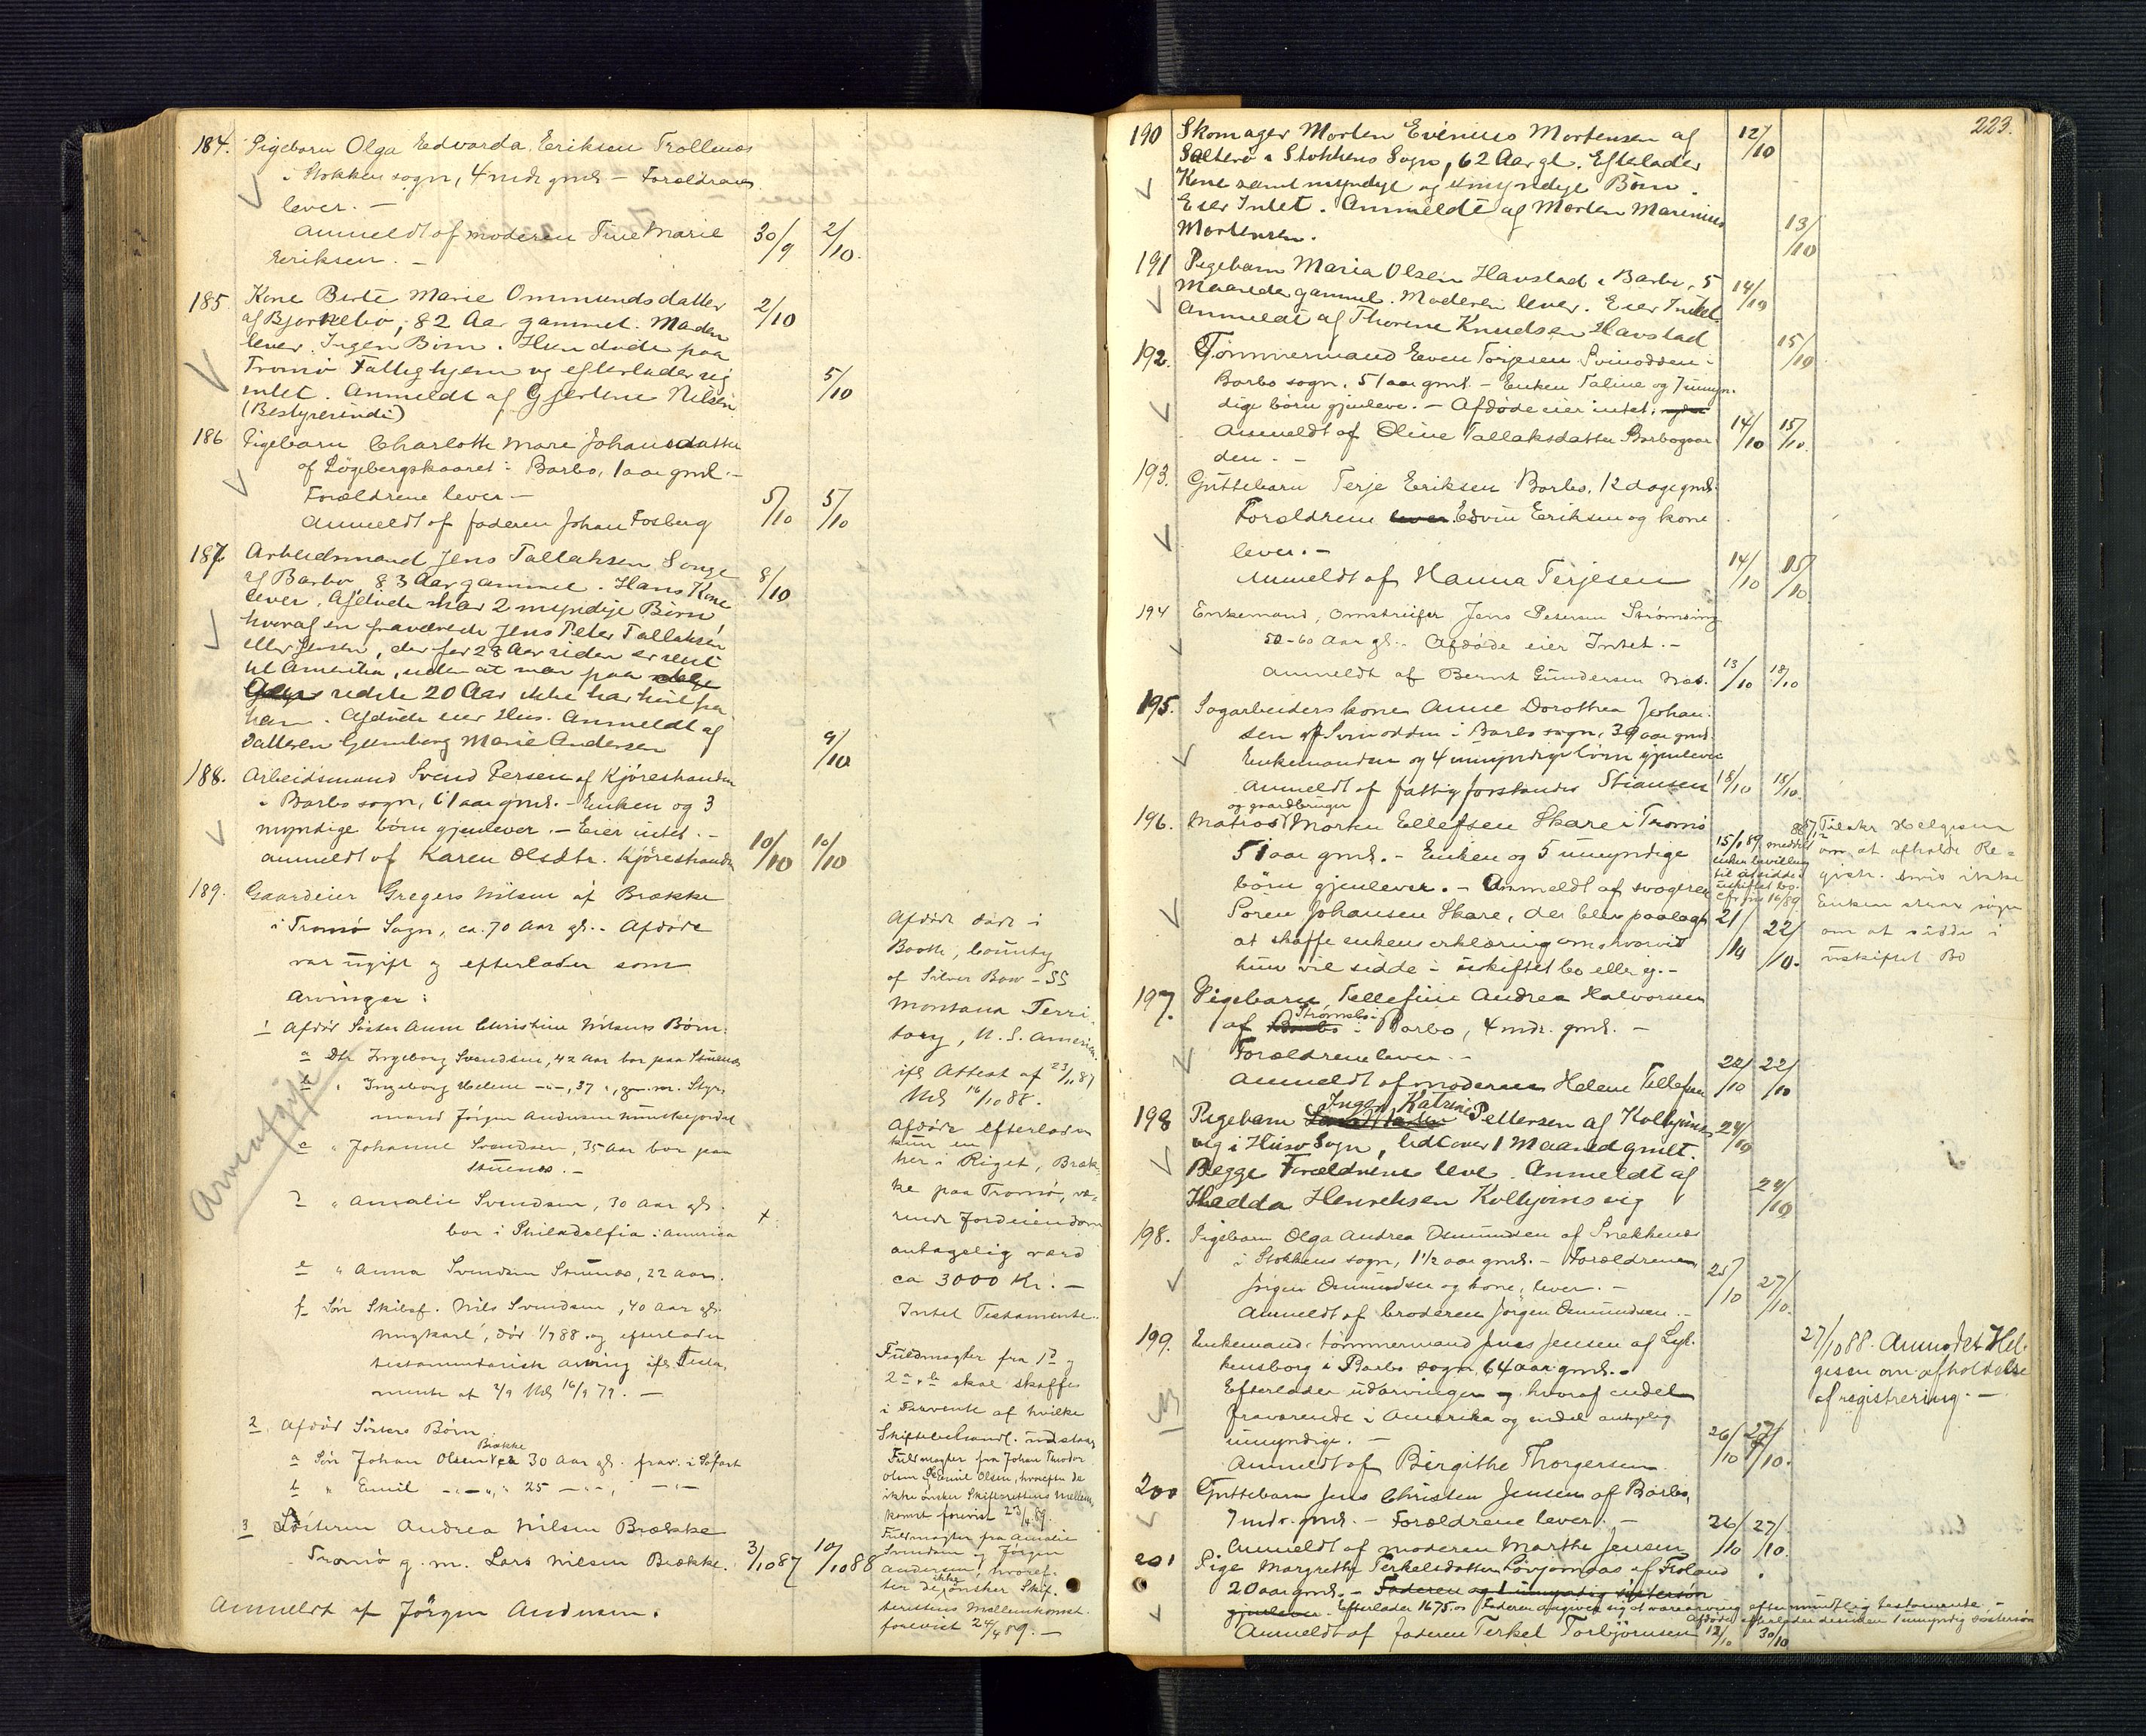 184. Pigebarn Olga Edvarda Eriksen Trollenæs
i Stokken sogn, 4 mdr gml – Forældrene
lever. –
Anmeldt af moderen Tine Marie 30/9 2/10.
Eriksen. –
185. Kone Berte Marie Ommundsdatter 2/10
af Bjørnebo, 82 Aar gammel. Maden
lever. Ingen Børn. Hun døde paa
Tromø Fattighjem og efterlader sig
intet. Anmeldt af Gjertine Nilsen 5/10
(Bestyrerinde)
186 Pigebarn Charlotte Marie Johansdatter
af Løgebergskaaret i Barbo, 1 aar gml. –
Forældrene lever –
Anmeldt af faderen Johan Fosberg 5/10 5/10
187 Arbeidsmand Jens Tallaksen Songe
af Barbo 83 Aar gammel. Hans Kone 8/10
lever. Afdøde har 2 myndige Børn,
hvoraf en fraværende Jens Peter Tallaksen
eller Jensen, der for 28 Aar siden er reist
til Amerika, uden at man paa
sidste 20 Aar ikke har hørt fra
ham. Afdøde eier Hus. Anmeldt af
Datteren Gunborg Marie Andersen 9/10
188. Arbeidsmand Svend Persen af Kjørestranden
i Barbo sogn, 61 aar gml. – Enken og 3
myndige børn gjenlever. – Eier intet. –
Anmeldt af Karen Olsdtr. Kjørestranden 10/10 10/10
189. Gaardeier Gregers Nilsen af Brække
i Tromø Sogn, ca. 70 Aar gl. – Afdøde
var ugift og efterlader som
Arvinger:
1 Afdød Søster Anne Christine Nilsens Børn:
a Dtr Ingeborg Svendsen, 42 Aar bor paa Stuenæs
b " Ingeborg Helene –"–, 37 ", g. m. Styr-
mand Jørgen Andersen
c " Johanne Svendsen, 35 Aar bor paa
Stuenæs. –
d " Amalie Svendsen, 30 Aar gl.
bor i Philadelfia i America +
e " Anna Svendsen Stuenæs, 22 Aar.
f Søn Skibsf. Nils Svendsen, 40 Aar gl.
ungkarl, død 1/7 88 og efterlader
testamentarisk arving ifl. Testa-
mente af 2/9 Nds 16/9 79. –
2. Afdød Søsters Børn
a Søn Johan Olsen Brække ca 30 Aar gl. frav. i Søfart
b " Emil –"– " 25 –"–, –"–
3 Søsteren Andrea Nilsen Brække
Tromø g. m. Lars Nilsen Brække. 3/10 87 10/10 88
Anmeldt af Jørgen Andersen.
Arveafgift
Afdøde døde i
Booth, County
of Silver Bow – SS
Montana Terri-
tory, U.S. America.
ifl Attest af 23/11 87
Nds 16/10 88.
Afdøde efterlader
kun en
her i Riget, Bræk-
ke paa Tromø, væ-
rende Jordeiendom
antagelig værd
ca 3000 Kr. –
Intet Testamente.
Fuldmagter fra 1 d og
2 a, b skal skaffes
i Skiftebehandl. udstaar
Fuldmagter fra Johan Theodor
Olsen og Emil Olsen, hvorefter de
ikke ønsker Skifterettens Mellem-
komst forevist 23/4 89.
Fuldmagter fra Amalie
Svendsen og Jørgen
Andersen, hvoref-
ter de ikke ønsker Skif-
terettens Mellemkomst
forevist 24/4 89. –
223.
190 Skomager Morten Evenius Mortensen af 12/10
Salterø i Stokkens Sogn, 62 Aar gl. Efterlader
Kone samt myndige og umyndige Børn.
Eier Intet. Anmeldt af Morten Marinius
Mortensen. 13/10
191 Pigebarn Maria Olsen Havstad i Barbo, 5 14/10
Maaneder gammel. Moderen lever. Eier Intet
Anmeldt af Thorine Knudsen Havstad 15/10
192. Tømmermand Even Torjesen Svinodden i
Barbo sogn. 51 aar gml. – Enken Taline og 7 umyn-
dige børn gjenlever. – Afdøde eier intet.
Anmeldt af Oline Tallaksdatter Barbogaar- 14/10 15/10.
den. –
193. Guttebarn Terje Eriksen Barbo. 12 dage gml.
Forældrene lever Edvin Eriksen og kone
lever. –
Anmeldt af Hanna Terjesen 14/10 15/10
194 Enkemand, Omstreifer Jens Petersen Strømsing
50–60 Aar gl. – Afdøde eier Intet. –
Anmeldt af Bernt Gundersen Næs. 13/10 18/10
195. Sagarbeiders kone Anne Dorothea Johan-
sen af Svinodden i Barbo sogn, 39 aar gml.
Enkemanden og 4 umyndige børn gjenlever
Anmeldt af fattigforstander Stiansen 18/10 18/10.
196. Matros og gaardbruger Morten Ellefsen Skare i Tromø
51 aar gml. – Enken og 5 umyndige
børn gjenlever. – Anmeldt af svogeren
Søren Johansen Skare, der blev paalagt 21/10 22/10.
at skaffe enkens erklæring om hvorvidt
hun vil sidde i uskiftet bo eller ej. –
15/1 89 meddelt
enken bevilling
til at sidde i
uskiftet bo.
Tilskr Helgesen
om at afholde Re-
gistr. hvis ikke
Enken strax søger
om at sidde i
uskiftet Bo
197. Pigebarn Tellefine Andrea Halvorsen
af Strømsbo i Barbo, 4 mdr. gml. –
Forældrene lever. –
Anmeldt af moderen Helene Tellefsen 22/10 22/10
198 Pigebarn Inger Katrine Pettersen af Kolbjørns- 24/10
vig i Hisø Sogn, lidt over 1 Maaned gmlt.
Begge Forældrene leve. Anmeldt af
Hedda Henriksen Kolbjørnsvig 24/10
198. Pigebarn Olga Andrea Osmundsen af Snekkenæs
i Stokkens sogn, 1 1/2 aar gml. – Forældrene
Jørgen Osmundsen og kone, lever. – 25/10 27/10.
Anmeldt af broderen Jørgen Osmundsen. –
199. Enkemand, tømmermand Jens Jensen af Lyk-
kensborg i Barbo sogn, 64 aar gml. –
Efterlader udarvinger og hvoraf endel
fraværende i Amerika og endel antagelig
umyndige. – 26/10 27/10.
Anmeldt af Birgithe Thorgersen
27/10 88. Anmodet Hel-
gesen om afholdelse
af registrering. –
200 Guttebarn Jens Christen Jensen af Barbo,
7 mdr. gml. – Forældrene lever. –
Anmeldt af moderen Marthe Jensen 26/10 27/10.
201 Pige Margrethe Terkelsdatter Løvjomdas af Froland
20 aar gml. – Faderen og 1 umyndig søstersøn
gjenlever. Efterlader 1675.00 Faderen angiver sig at være arving efter mundtlig testamente –
Afdøde efterlader desuden 1 umyndig søstersøn
Anmeldt af faderen Terkel Torbjørnsen 12/10 30/10